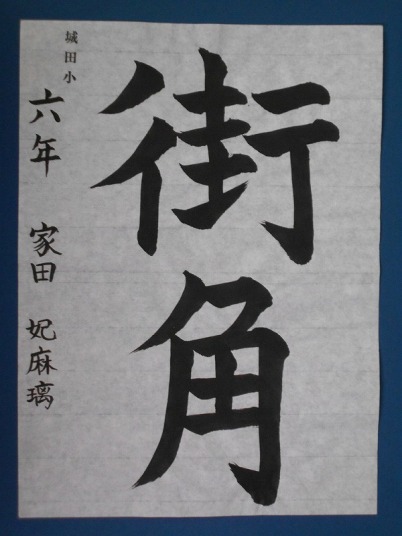 街角
城田小
六年 家田 妃麻璃